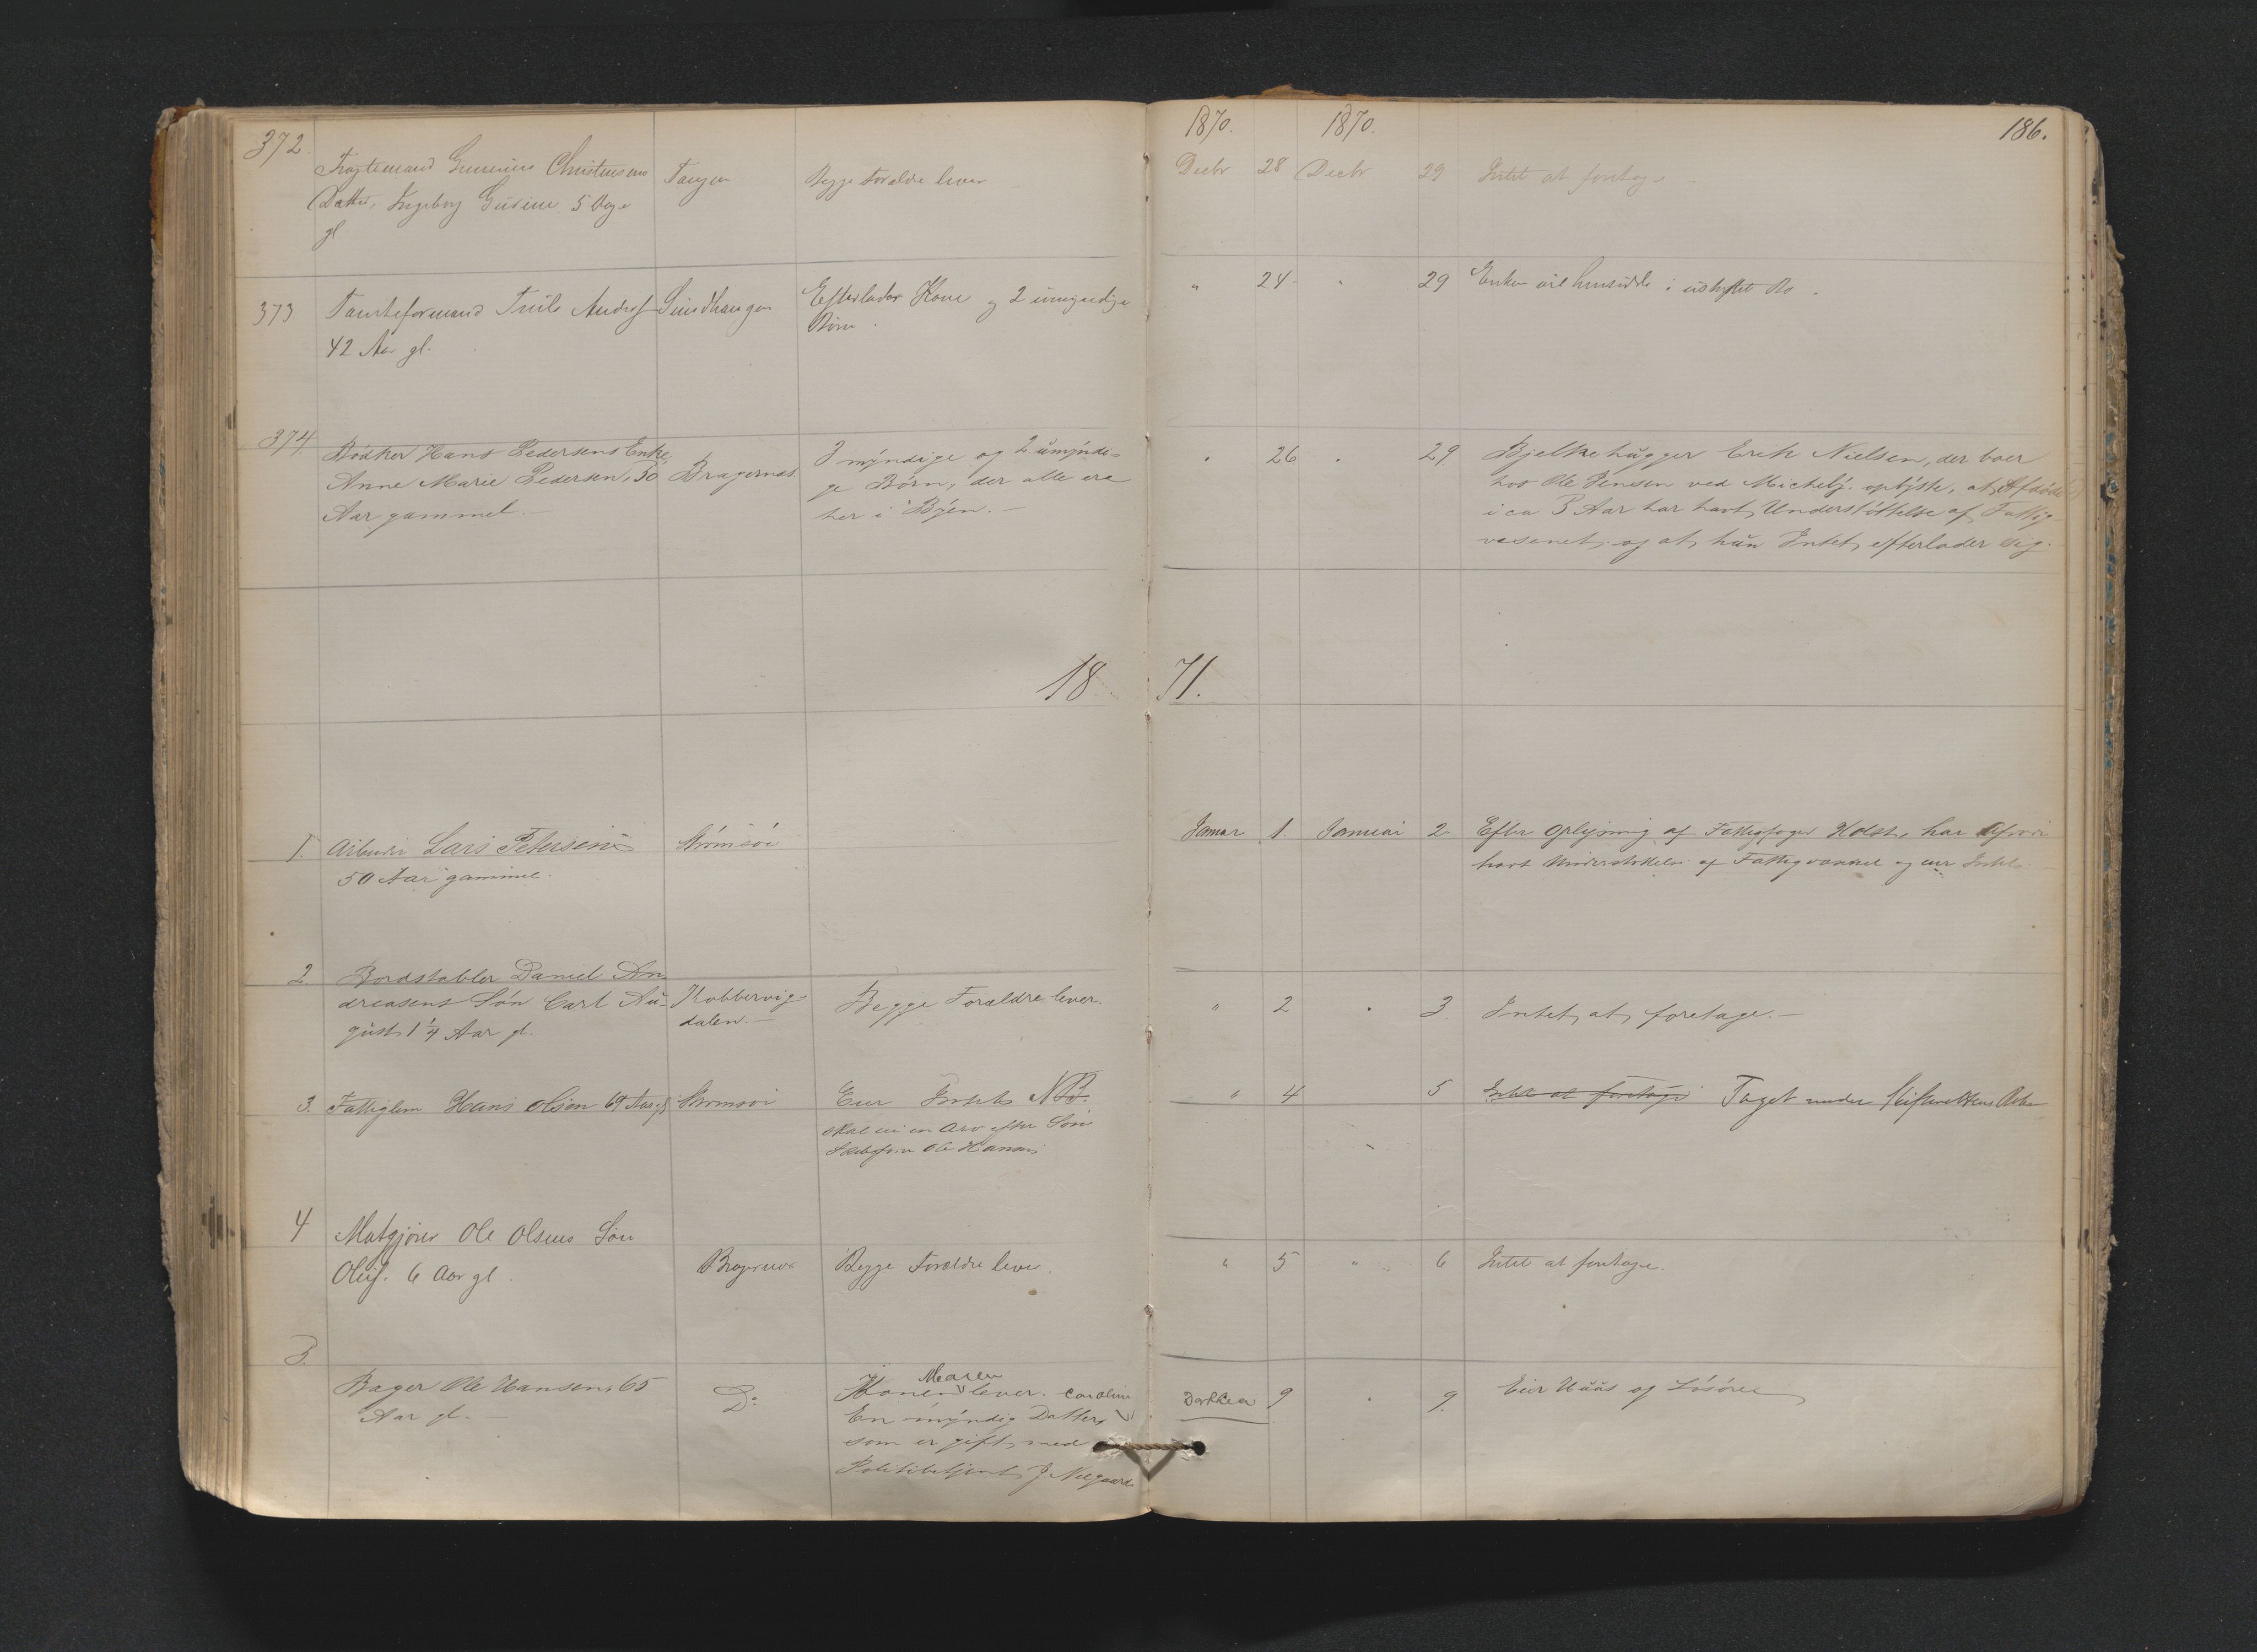 1870. 1870. 186.
372. Fragtemand Gunerius Christensens Tangen Begge Forældre lever Decbr 28 Decbr 29 Intet at foretage
Datter, Ingeborg Gusine 5 Dage
gl
373 Tomteformand Truls Anders Sundhaugen Efterlader Kone og 2 umyndige " 24 " 29 Enken vil hensidde i uskiftet Bo.
42 Aar gl. Børn.
374 Bödker Hans Pedersens Enke Bragernæs 3 myndige og 2 umyndi- " 26 " 29. Bjelkehugger Erik Nielsen, der boer
Anne Marie Pedersen, 50 ge Börn, der alle ere hos Ole Jensen ved Michelj. oplyste, at Afdöde
Aar gammel. her i Byen. i ca 3 Aar har havt Understöttelse af Fattig-
vesenet, og at hun Intet efterlader sig.
18 71.
1. Arbeider Lars Petersen Strömsöe Januar 1. Januar 2. Efter Oplysning af Fattigfoged Holst, har Afdöde
50 Aar gammel. havt Understöttelse af Fattigvæsenet og eier Intet
2. Bordstabler Daniel An- Kobbervig- Begge Forældre lever. " 2 " 3. Intet at foretage.
dreasens Sön Carl Au- dalen.
gust 1 1/4 Aar gl.
3. Fattiglem Hans Olsen 69 Aar gl Strömsöe Eier Intet NB. " 4 5 Intet at foretage Taget under Skifterettens Beh
skal eie en Arv efter Sön
Ole Hansen
4 Matgjører Ole Olsens Søn Bragernæs Begge Forældre lever. " 5 " 6 Intet at foretage.
Oluf. 6 Aar gl.
5. Bager Ole Hansen, 65 Do Konen Maren lever. Caroline 9 " 9. Eier Huus og Lösöre
Aar gl. En myndig Datter,
som er gift med
Politibetjent J. Nelgaard